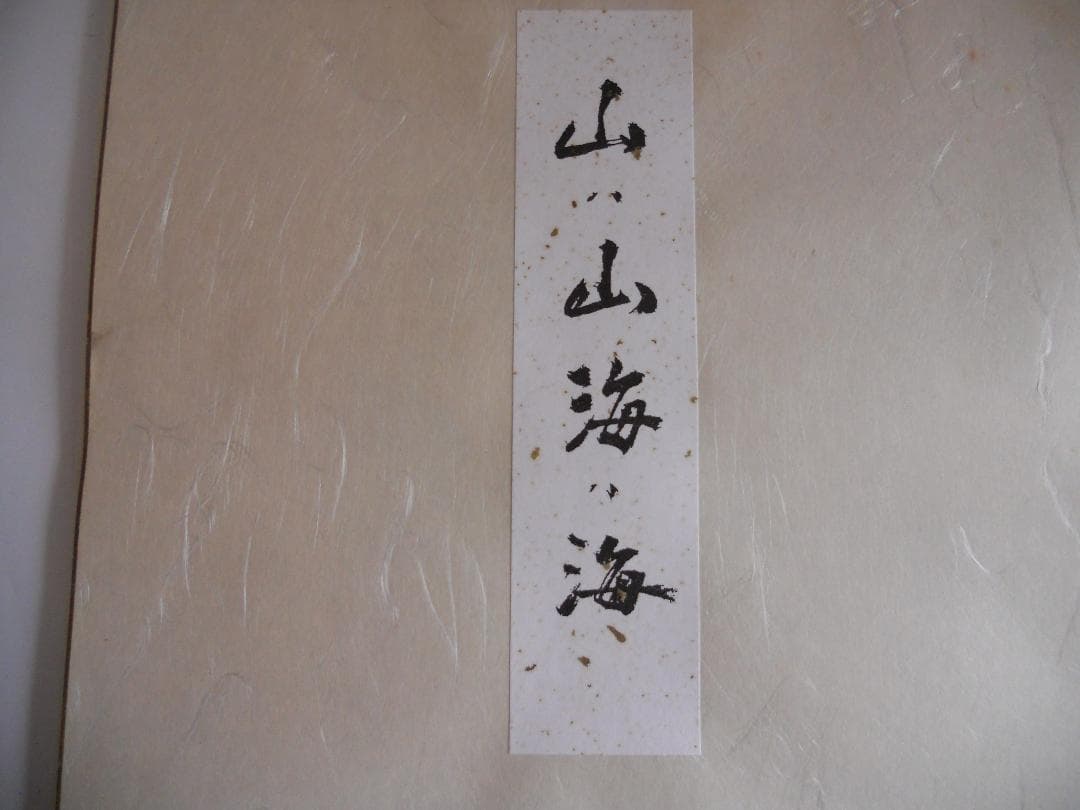 山ハ山海ハ海